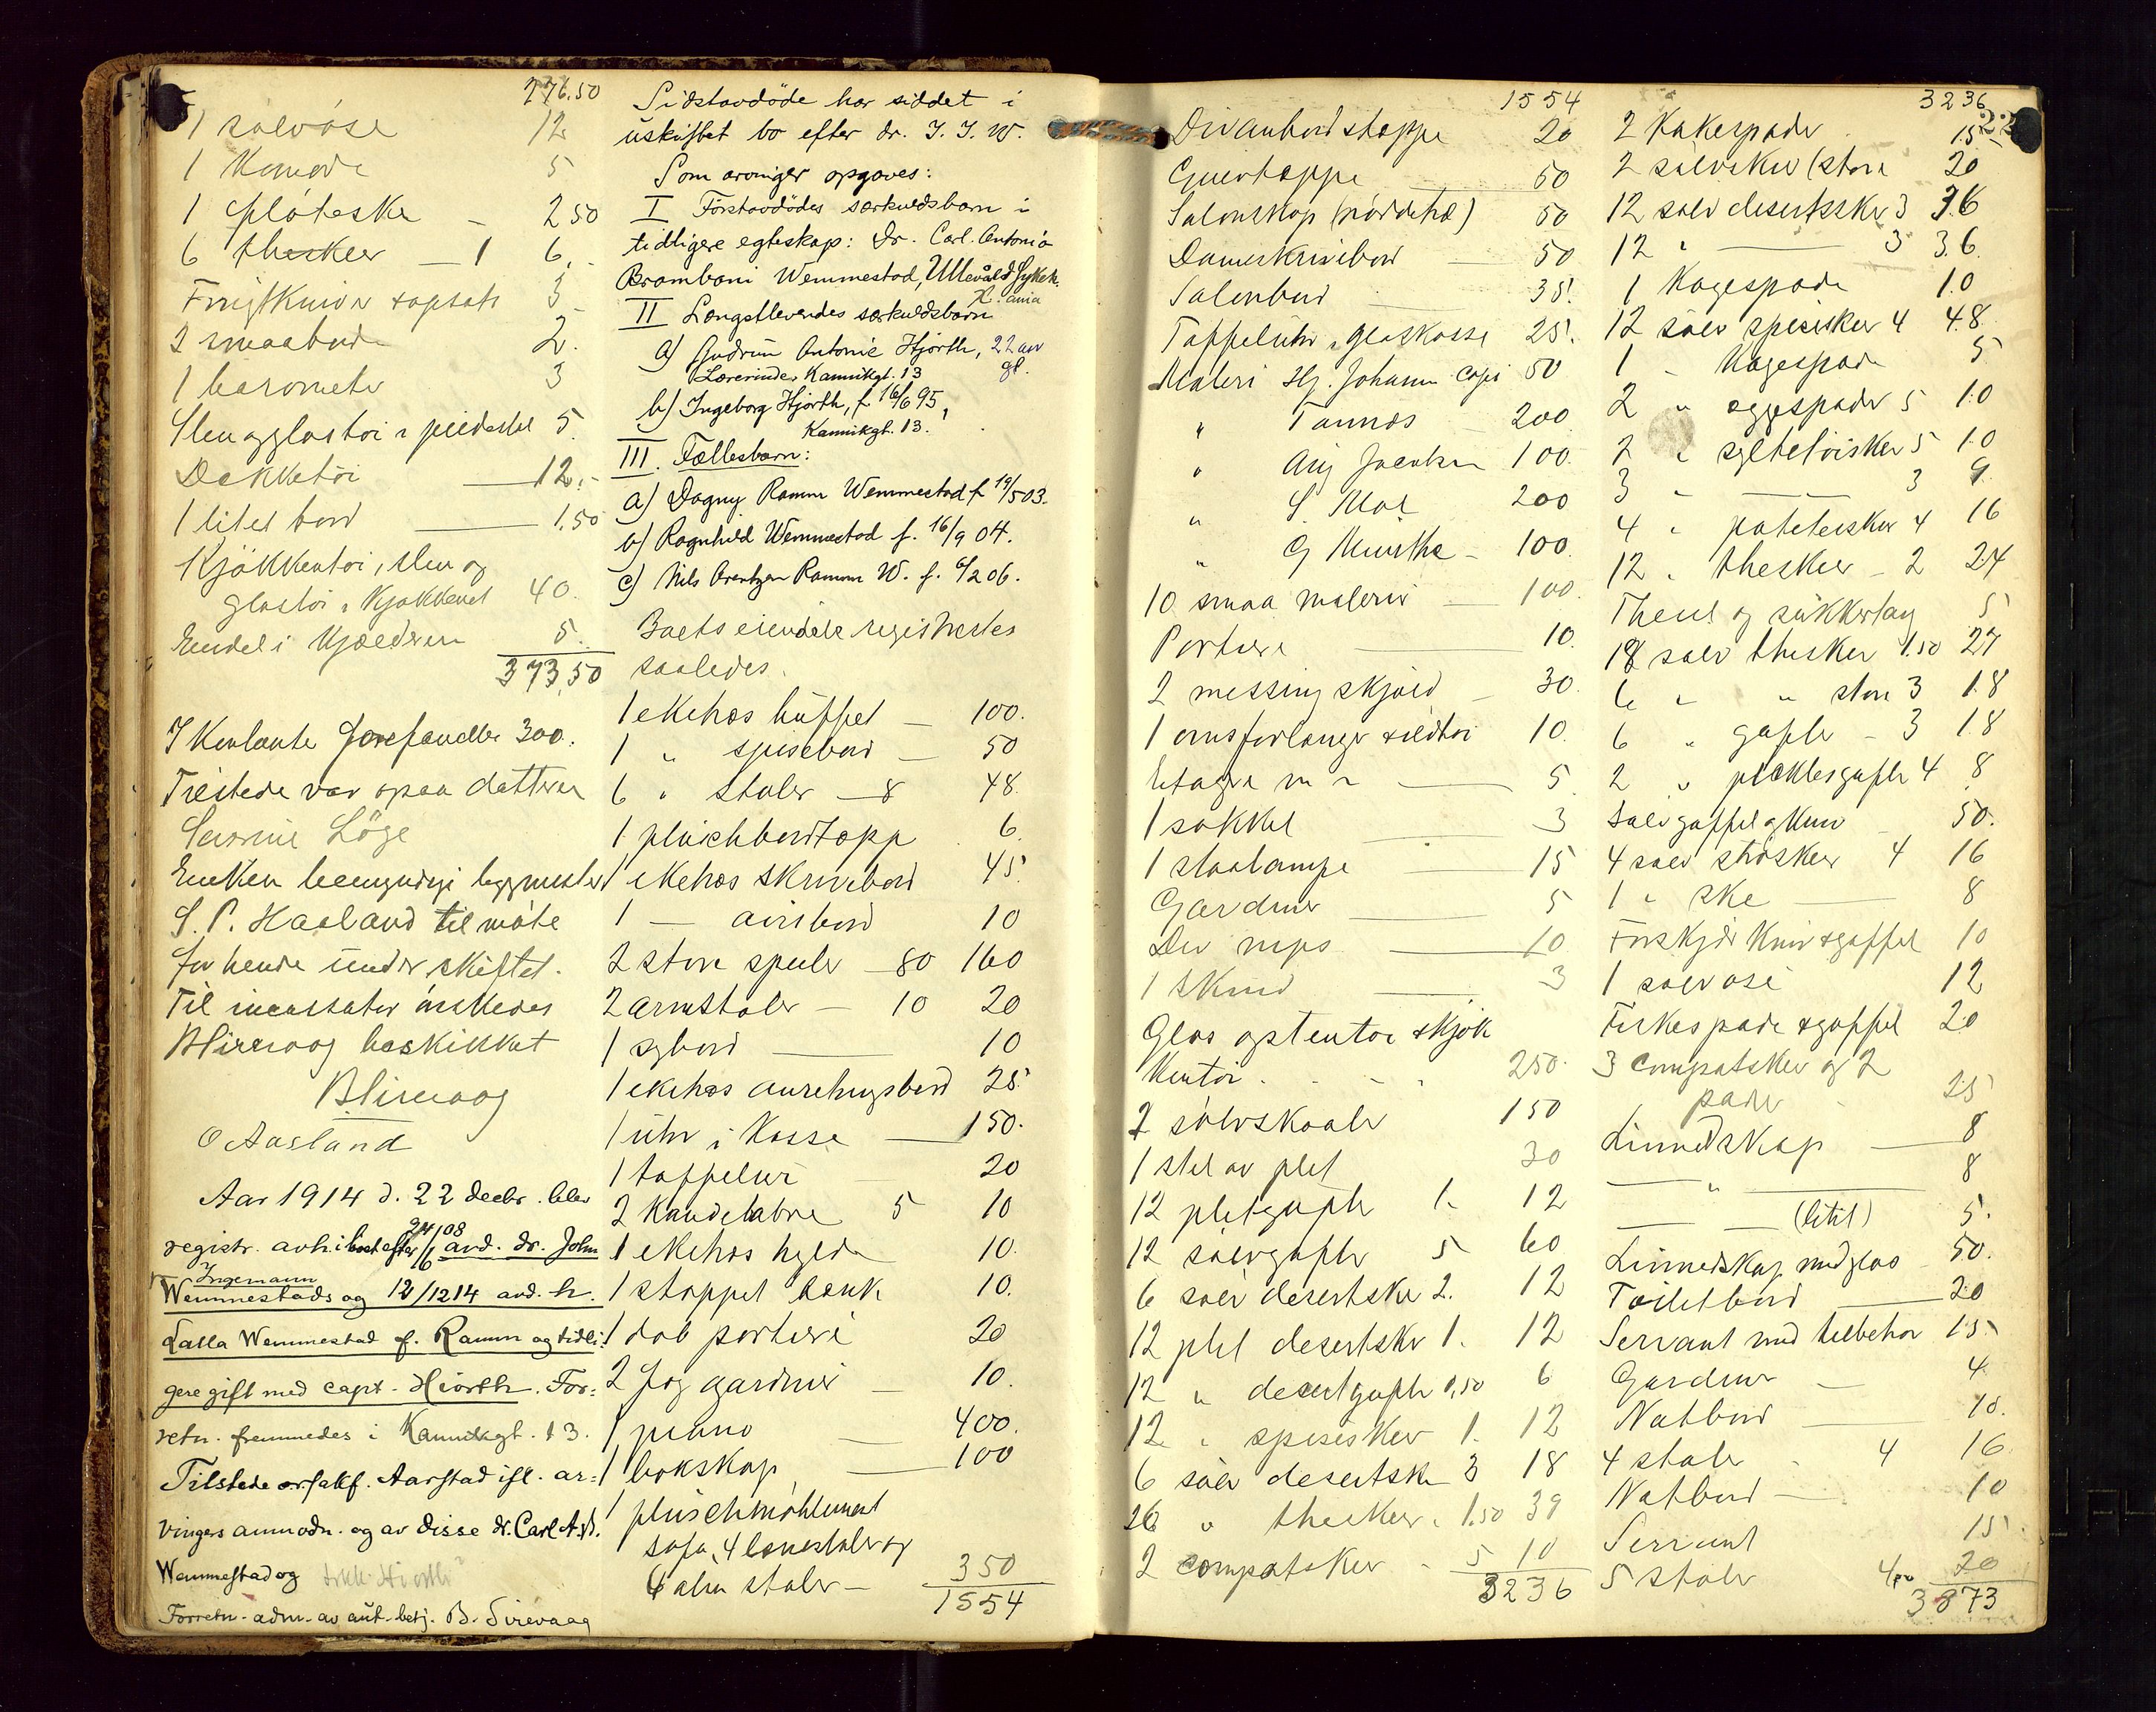 276.50
1 sølvøse 12
1 Komode 5
1 fløteske – 2 50
6 theskeer – 1 6.-
Frugtkniver & opsats 3
2 smaaborde 2.
1 barometer 3
Sten og glastøi & piedestal 5.
Dekketøi 12.-
1 litet bord 1.50
Kjøkkentøi, sten og
glastøi i Kjøkkenet 40.
Endel i Kjælderen 5.
373,50
I Kontante forefandtes 300.
Tilstede var ogsaa datteren
Serine Löge
Enken bemyndige byggmester
S. P. Haaland til møte
for hende under skiftet.
Til incassator ønskedes
B Sirevaag beskikket
B Sirevaag
O Aasland
Aar 1914 d. 22 decbr. blev
registr. avh. i boet efter 24/6 08 avd. dr. John
Ingemann
Wemmestads og 12/12 14 avd. h.
Lalla Wemmestad f. Ramm og tidli-
gere gift med capt. Hiorth. For=
retn. fremmedes i Kannikgt. 13.
Tilstede o.r.sakf. Aarstad ifl. ar=
vingers anmodn. og av disse dr. Carl A. B.
Wemmestad og frk. Hiorth
Forretn. adm. av aut. betj. B. Sirevaag
Sidstavdöde har siddet i
uskiftet bo efter dr. J. I. W.
Som arvinger opgaves:
I Förstavdödes særkuldsbarn i
tidligere egteskap: Dr. Carl Antonio
Bramboni Wemmestad, Ullevåld Sykeh.
X.ania
II Længstlevendes særkuldsbarn
a) Gudrun Antonie Hjorth, 22 aar
Lærerinde, Kannikgt. 13 gl.
b) Ingeborg Hjorth, f. 16/6 95,
Kannikgt. 13.
III. Fællesbarn:
a) Dagny Ramm Wemmestad f. 19/5 03.
b) Ragnhild Wemmestad f. 16/9 04.
c) Nils Arentzen Ramm W. f. 6/2 06.
Boets eiendele registrertes
saaledes.
1 ekehos buffet – 100.
1 " spisebord – 50
6 " stoler – 8 48.
1 pluschbordtæpp 6.
1 ekehos skrivebord 45.
1 — avisbord 10
2 store speiler – 80 160
2 armstoler – 10 20
1 sybord 10
1 ekehos anretningsbord 25
1 uhr i Kasse 150.
1 taffelur 20
2 Kandelabre 5 10
1 ekehos hylde 10.
1 stoppet bænk 10.
1 dob portiere 20
2 fag gardiner – 10.
1 piano 400.
1 bokskap 100
1 pluschmøblement
sofa, 4 lænestoler og
6 alm stoler – 350
1554
1554
Divanbordstæppe 20
Gulvtæppe 50
Salonskap (nøddetræ) 50
Dameskrivebord 50
Salonbord 35.
Taffeluhr i glaskasse 25.
Maleri Hj. Johann. Copi 50
" Tannæs 200
" Aug Jacobsen 100.
" S. Moe 200
" G Munthe – 100.
10 smaa malerier 100.
Portiere 10.
2 messingskjold 30.
1 ovnsforlanger & ildtøi 10.
Etagere m n 5
1 sokkel 3
1 staalampe 15
Gardiner 5
Div nips 10
1 skind 3
Glas og stentøi & Kjøk
Kentøi . . . 250.
2 sølvskaaler 150
1 stel av plet 30
12 pletgafler 1. 12
12 sølvgafler 5 60
6 sølv desertske 2. 12
12 plet desertsker 1. 12
12 " desertgafler 0,50 6
12 " spiseskeer 1. 12
6 sølv desertske 3 18
26 " theskeer 1.50 39
2 compotskeer 5 10
3236
3236
22
2 Kakespader 15
2 sølvskeer (store 20
12 sølv desertskeer 3 36
12 " — 3 36
1 Kagespade 10
12 sølv spiseskeer 4 48
1 – Kagespade 5
2 " eggespader 5 10
2 " syltetøiskeer 5 10
3 " — 3 9
4 " poteteskeer 4 16
12 " theskeer – 2 24
Thesil og sukkertang 5
18 sølv theskeer 1.50 27
6 " " store 3 18
6 " gafler – 3 18
2 " picklesgafler 4 8
Sølvgaffel & kniv 50.
4 sølv strøskeer 4 16
1 " ske 8
Forskjær Kniv & gaffel 10
1 sølvøse 12
Fiskespade & gaffel 20
3 compotskeer og 2
pader 25
Linnedskap 8
— " — 8
— — (litet) 5.
Linnedskap med glas 50.
Toiletbord 20
Servant med tilbehør 15.
Gardiner 4
Natbord 10.
4 stoler 4 16
Natbord 10
Servant 15.
5 stoler 4 pr 20
3873